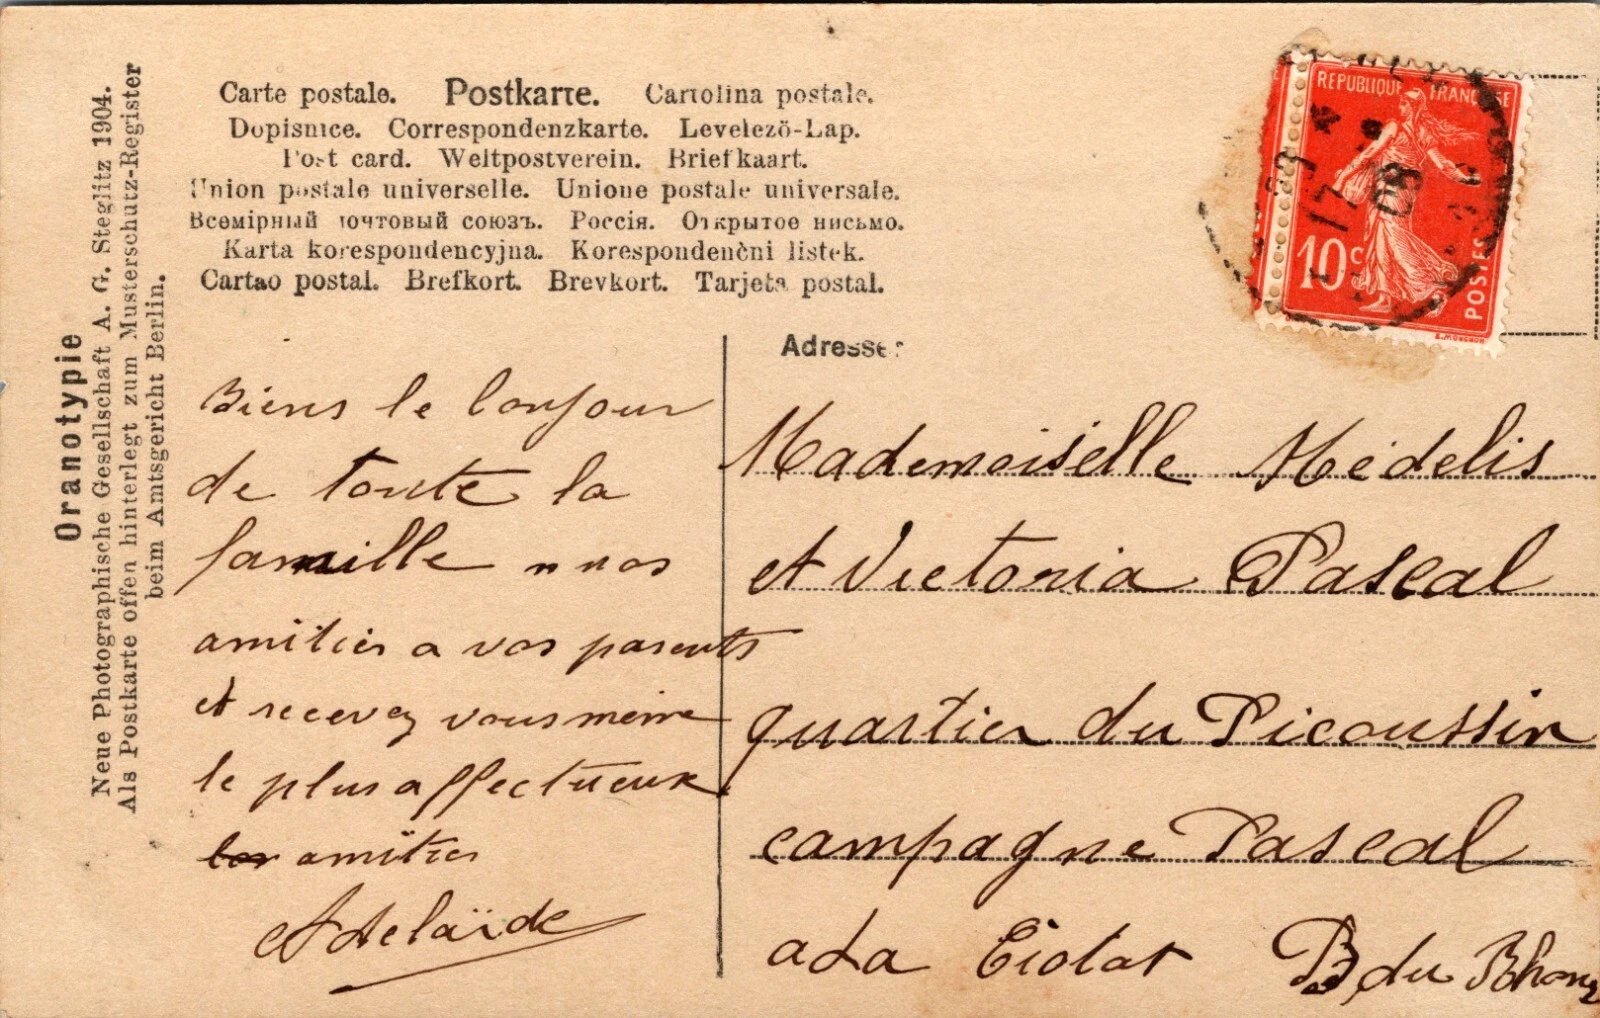 Carte postale. Postkarte. Cartolina postale.
Dopisnice. Correspondenzkarte. Levelező-Lap.
Post card. Weltpostverein. Briefkaart.
Union postale universelle. Unione postale universale.
Всемірный почтовый союзъ. Россія. Открытое письмо.
Karta korespondencyjna. Korespondenční listek.
Cartao postal. Brefkort. Brevkort. Tarjeta postal.
Oranotypie
Neue Photographische Gesellschaft A. G. Steglitz 1904.
Als Postkarte offen hinterlegt zum Musterschutz-Register
beim Amtsgericht Berlin.
REPUBLIQUE FRANÇAISE
10c
POSTES
E.MOUCHON
17
08
Biens le bonjour
de toute la
famille nos
amitiés a vos parents
et recevez vous même
le plus affectueux
les amitiés
Adelaïde
Adresse:
Mademoiselle Médelis
et Victoria Pascal
quartier du Picoussin
campagne Pascal
a La Ciotat B du Rhone